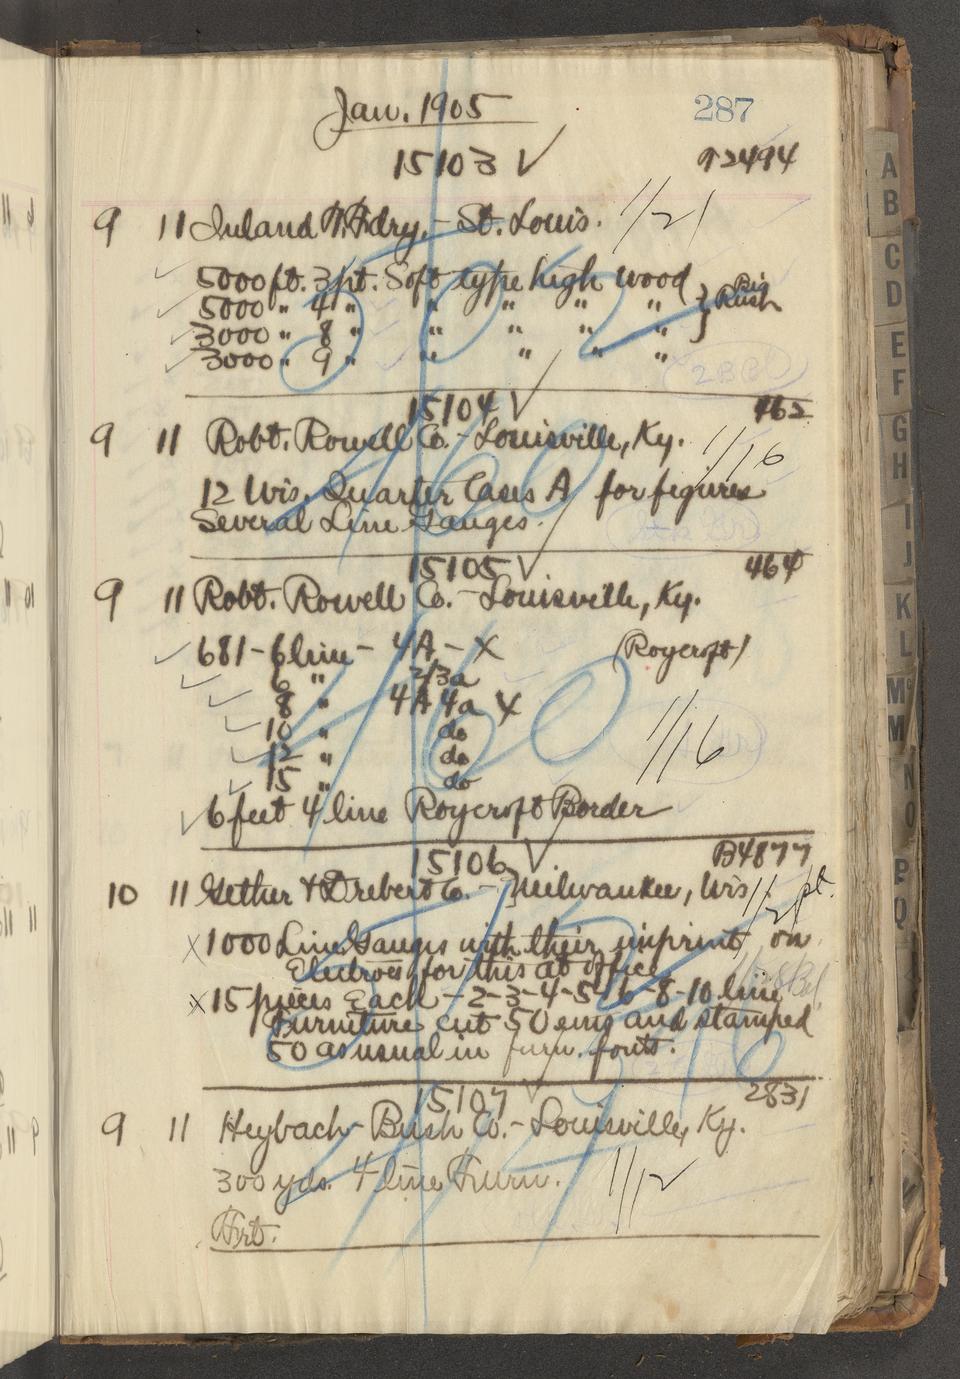 Jan. 1905 287
15103 √ 92494
9 11 Inland T. Fdry. - St. Louis. 1/21
5000 ft. 3 pt. Soft type high wood } Big Rush
5000 " 4 " " " " "
3000 " 8 " " " " "
3000 " 9 " " " " "
2BB
15104 √ 462
9 11 Robt. Rowell Co. - Louisville, Ky. 1/16
12 Wis. Quarter Cases A for figures
Several Line Gauges.
15105 √ 464
9 11 Robt. Rowell Co. - Louisville, Ky.
681 - 6 line - 4A - X (Roycroft)
6 " 2/3a
8 " 4A 4a X
10 " do
12 " do 1/16
15 " do
6 feet 4 line Roycroft Border
15106 √ B4877
10 11 Gether & Drebert Co. - Milwaukee, Wis. 1/21 pt.
X 1000 Line Gauges with their imprint on
Electros for this at office
X 15 pieces Each - 2-3-4-5-6-8-10 line
Furniture cut 50 ems and stamped
50 as usual in furn. fonts.
15107 √ 2831
9 11 Heybach-Bush Co. - Louisville, Ky.
300 yds. 4 line Furn. 1/12
Frt.
A
B
C
D
E
F
G
H
I
J
K
L
Mc
M
N
O
P
Q